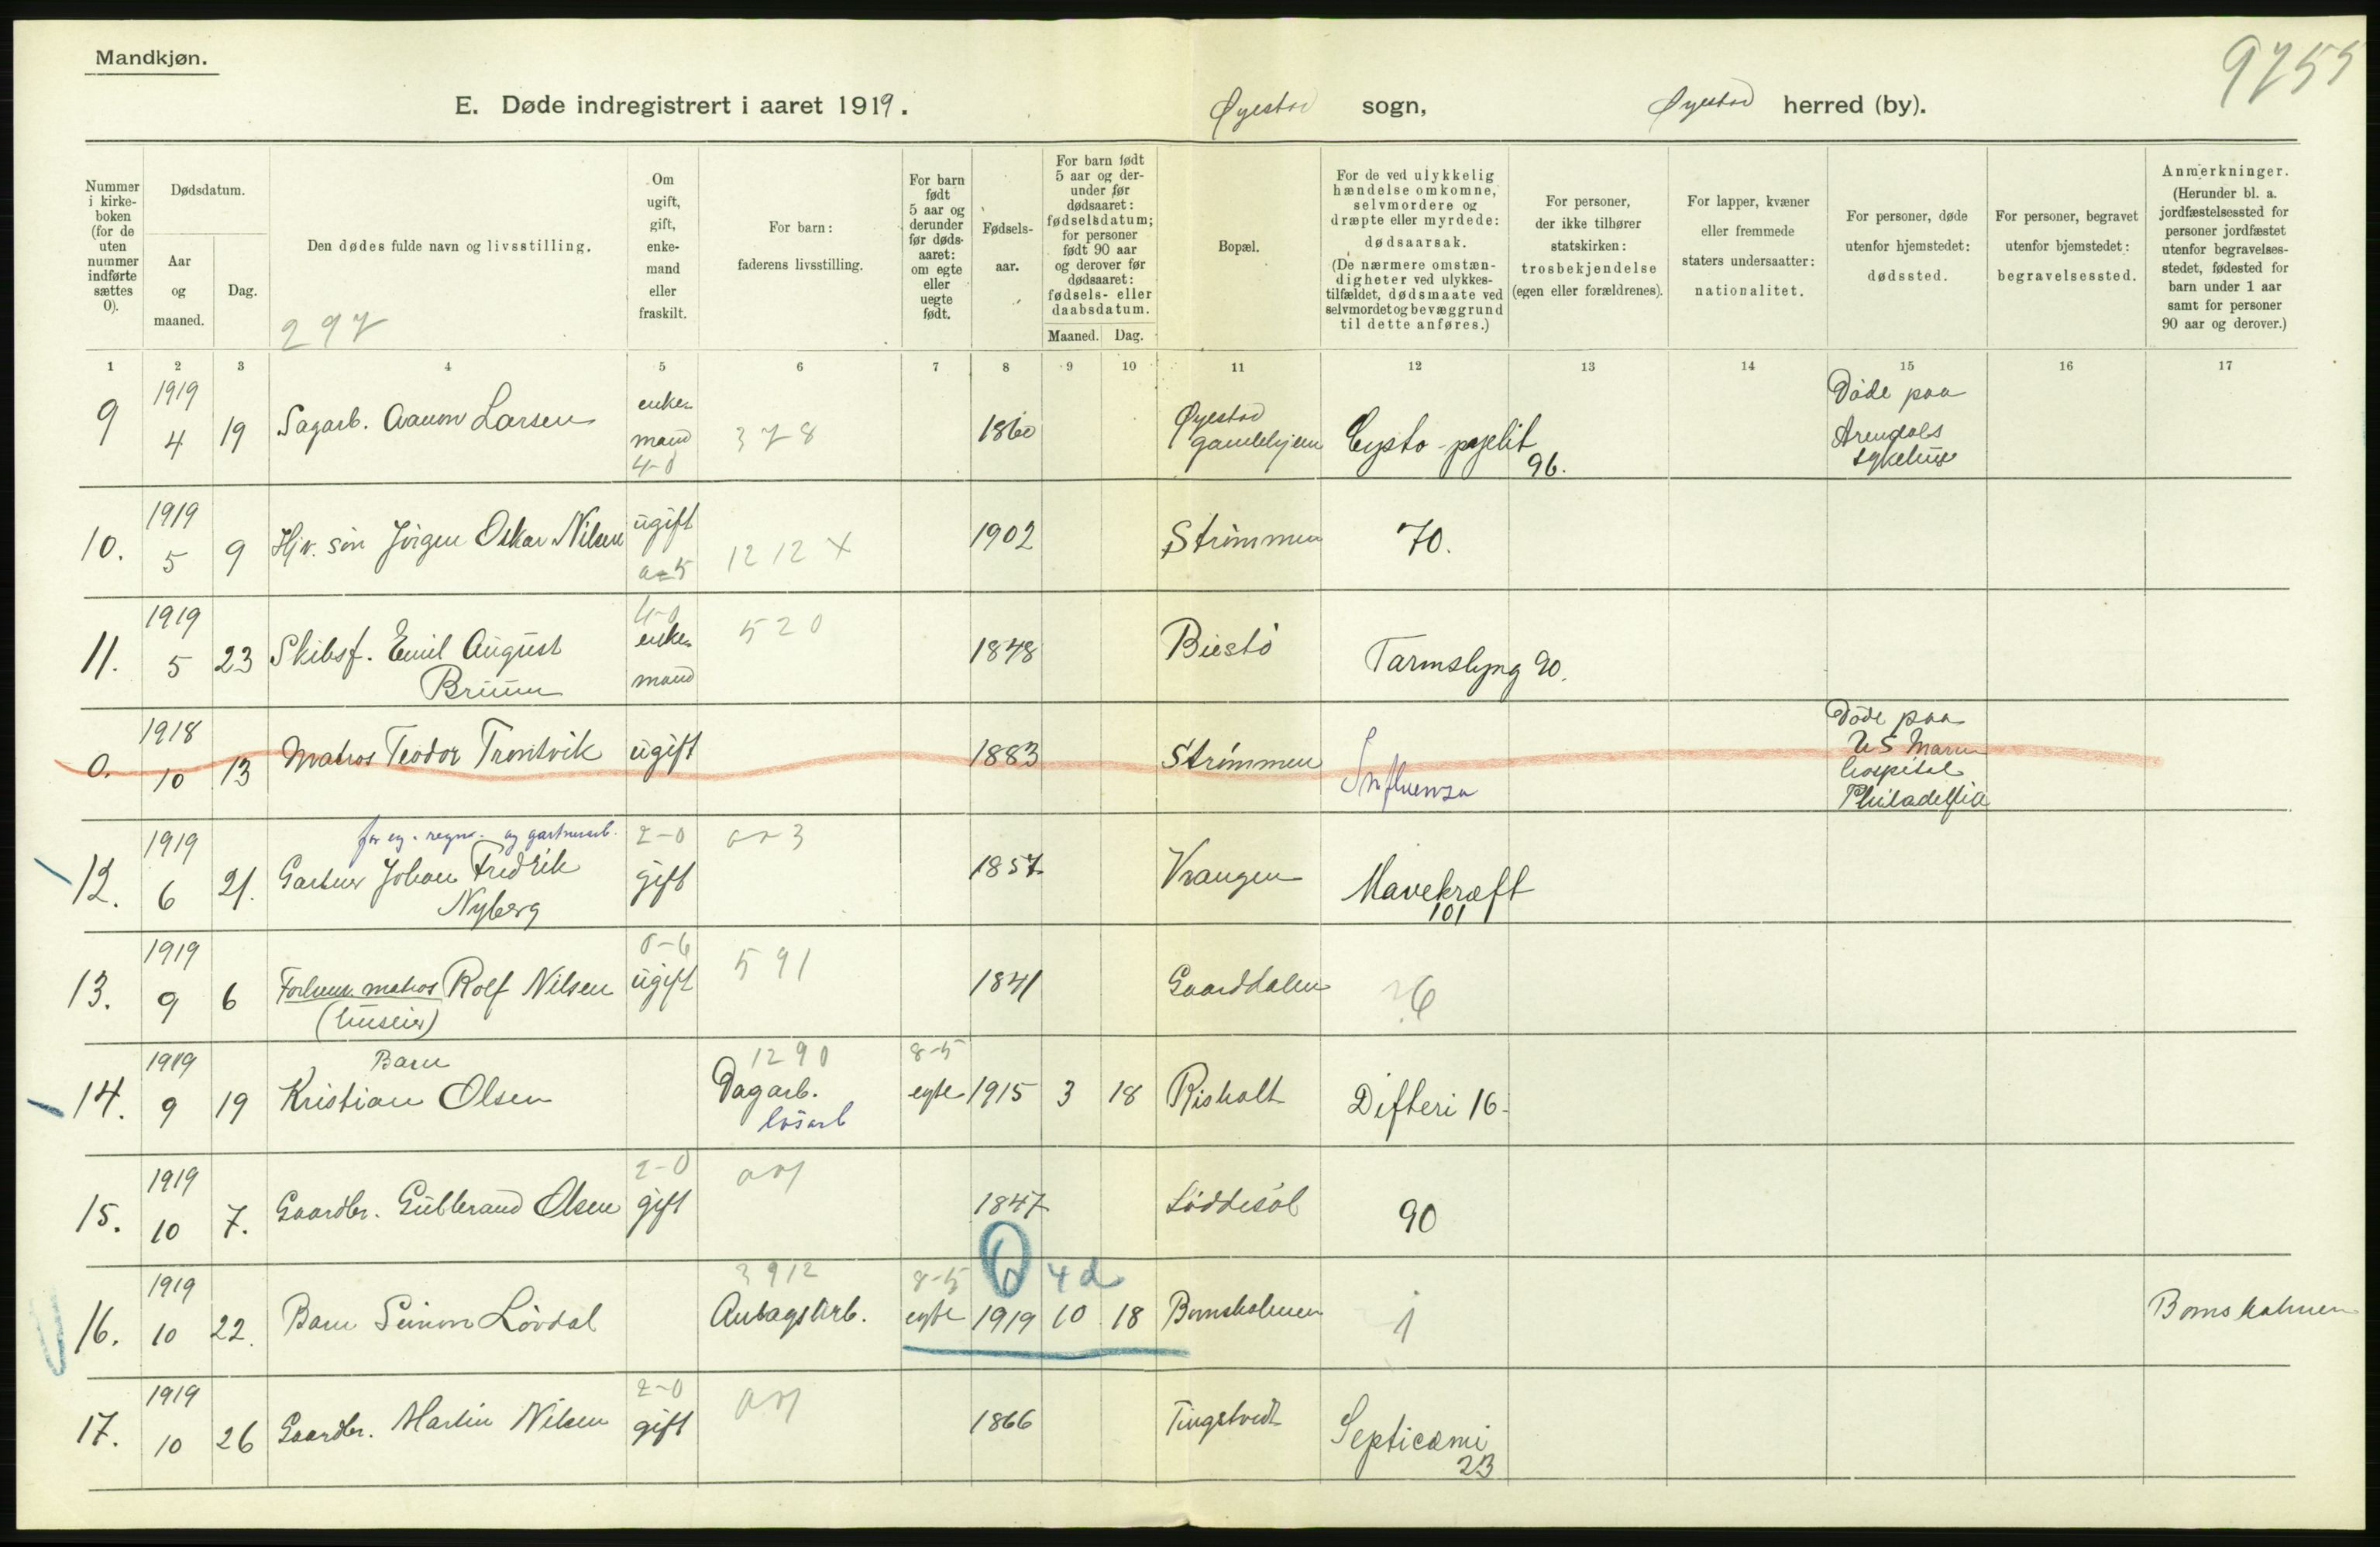 Mandkjøn.
9755
E. Døde indregistrert i aaret 1919.
Øyestad sogn, Øyestad herred (by).
Nummer i kirke-boken (for de uten nummer indførte sættes 0).
Dødsdatum.
Aar og maaned.
Dag.
Den dødes fulde navn og livsstilling.
297
Om ugift, gift, enke-mand eller fraskilt.
For barn: faderens livsstilling.
For barn født 5 aar og derunder før døds-aaret: om egte eller uegte født.
Fødsels-aar.
For barn født 5 aar og der-under før dødsaaret: fødselsdatum; for personer født 90 aar og derover før dødsaaret: fødsels- eller daabsdatum.
Maaned. Dag.
Bopæl.
For de ved ulykkelig hændelse omkomne, selvmordere og dræpte eller myrdede: dødsaarsak.
(De nærmere omstæn-digheter ved ulykkes-tilfældet, dødsmaate ved selvmordet og bevæggrund til dette anføres.)
For personer, der ikke tilhører statskirken: trosbekjendelse (egen eller forældrenes).
For lapper, kvæner eller fremmede staters undersaatter: nationalitet.
For personer, døde utenfor hjemstedet: dødssted.
For personer, begravet utenfor bjemstedet: begravelsessted.
Anmerkninger.
(Herunder bl. a. jordfæstelsessted for personer jordfæstet utenfor begravelses-stedet, fødested for barn under 1 aar samt for personer 90 aar og derover.)
1 2 3 4 5 6 7 8 9 10 11 12 13 14 15 16 17
9 1919 4 19 Sagarb. Aanon Larsen enkemand 4-0 378 1860 Øyestad gamlehjem Cysto-pyelit 96. Døde paa Arendals sykehus
10. 1919 5 9 Hjv. søn Jörgen Oskar Nilsen ugift a=5 1212 X 1902 Strömmen 70.
11. 1919 5 23 Skibsf. Emil August Bruun 4-0 enkemand 520 1848 Biestö Tarmslyng 90.
0. 1918 10 13 Matros Teodor Trontvik ugift 1883 Strömmen Influensa Döde paa US Marine hospital Philadelfia
12. 1919 6 21. for eg. regn. og gartnerarb. Gartner Johan Fredrik Nyberg 2-0 gift 1857 Vrangen Mavekræft 101
13. 1919 9 6 Forhenv. matros Rolf Nilsen (huseier) 0-6 ugift 591 1841 Gaarddalen 6
14. 1919 9 19 Barn Kristian Olsen 1290 Dagarb. løsarb 8-5 egte 1915 3 18 Risholt Difteri 16
15. 1919 10 7. Gaardbr. Gulbrand Olsen 2-0 gift 1847 Løddesøl 90
16. 1919 10 22. Barn Simon Lövdal 3912 Anlægsarb. 8-5 egte 1919 10 18 4d Bomsholmen 1 Bomsholmen
17. 1919 10 26 Gaardbr. Martin Nilsen 2-0 gift 1866 Tingstvedt Septicæmi 23